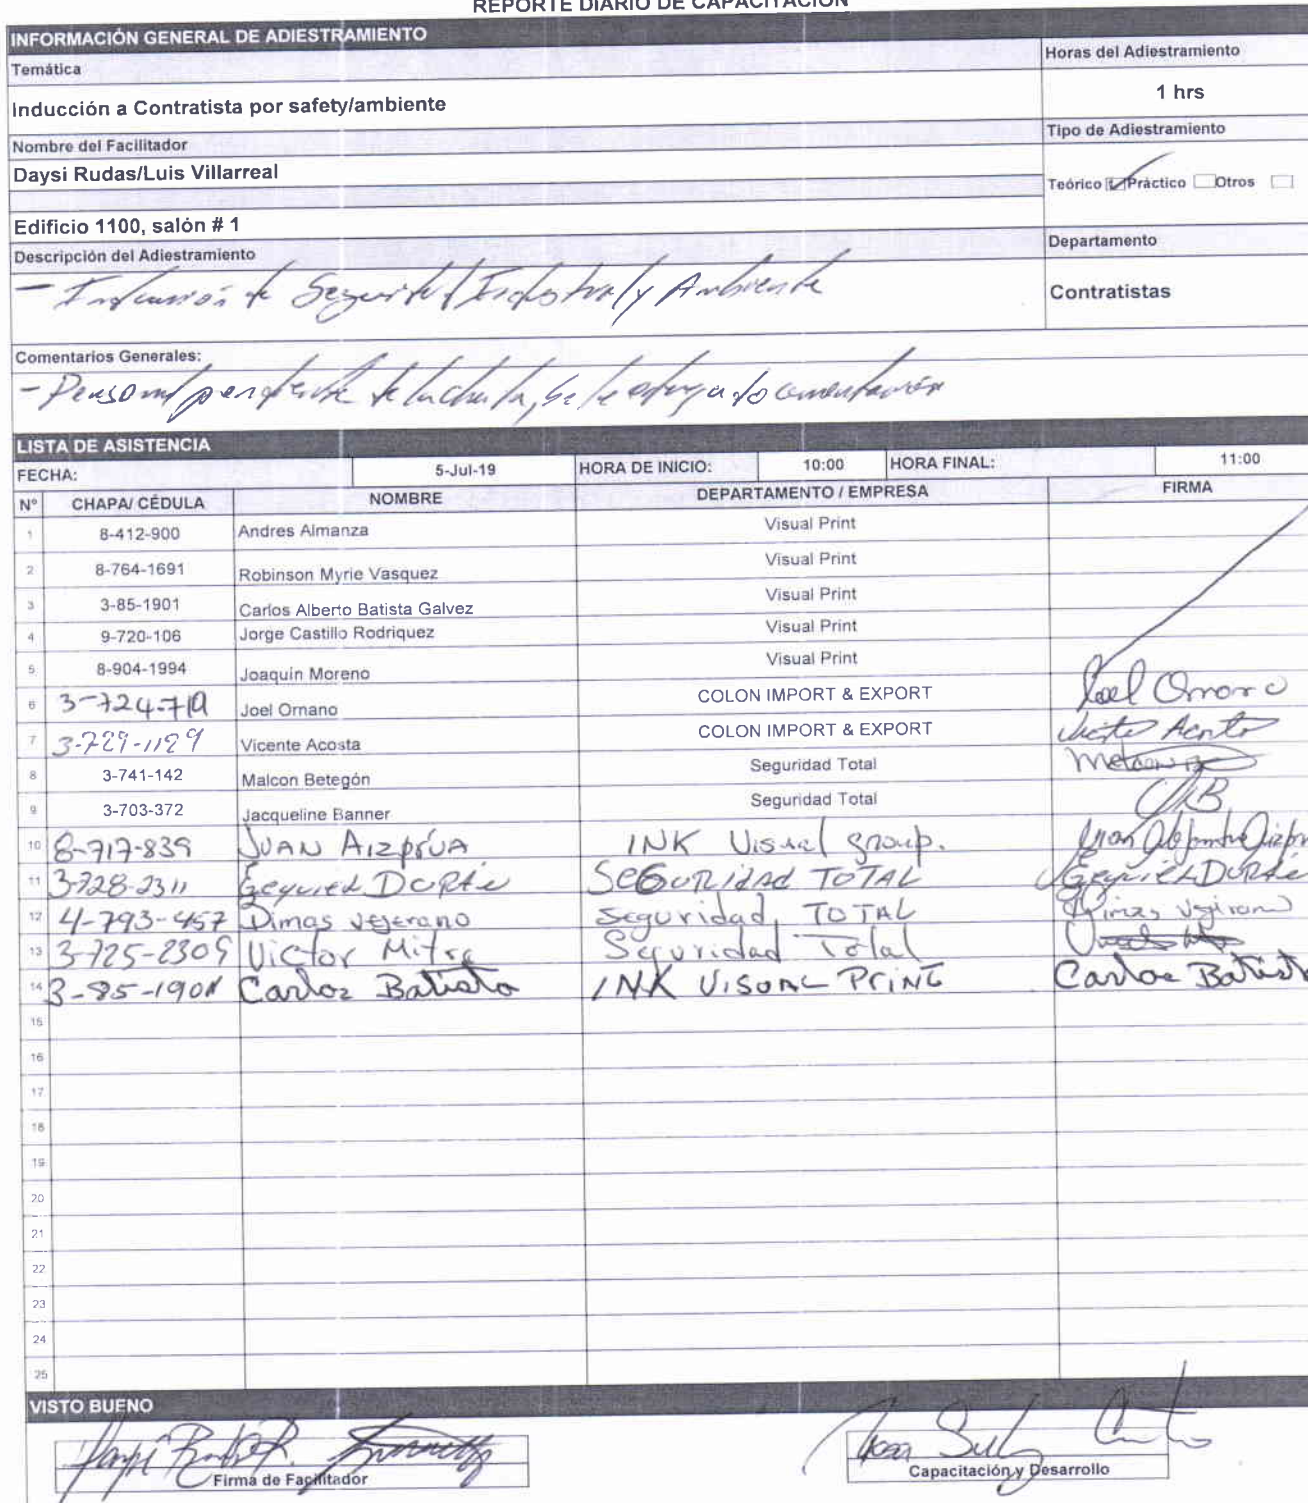 REPORTE DIARIO DE CAPACITACIÓN
INFORMACIÓN GENERAL DE ADIESTRAMIENTO
Temática
Horas del Adiestramiento
Inducción a Contratista por safety/ambiente
1 hrs
Nombre del Facilitador
Tipo de Adiestramiento
Daysi Rudas/Luis Villarreal
Teórico Práctico Otros
Edificio 1100, salón # 1
Descripción del Adiestramiento
Departamento
- Inducción de Seguridad Industrial y Ambiente
Contratistas
Comentarios Generales:
- Personal pendiente de la charla, se le entrega documentación
LISTA DE ASISTENCIA
FECHA: 5-Jul-19 HORA DE INICIO: 10:00 HORA FINAL: 11:00
N° CHAPA/ CÉDULA NOMBRE DEPARTAMENTO / EMPRESA FIRMA
1 8-412-900 Andres Almanza Visual Print
2 8-764-1691 Robinson Myrie Vasquez Visual Print
3 3-85-1901 Carlos Alberto Batista Galvez Visual Print
4 9-720-106 Jorge Castillo Rodriquez Visual Print
5 8-904-1994 Joaquin Moreno Visual Print
6 3-724-719 Joel Ornano COLON IMPORT & EXPORT Joel Ornano
7 3-729-1129 Vicente Acosta COLON IMPORT & EXPORT
8 3-741-142 Malcon Betegón Seguridad Total
9 3-703-372 Jacqueline Banner Seguridad Total
10 8-717-839 JUAN AIzprúA INK Visual group.
11 3-728-2311 SEGURIDAD TOTAL
12 4-793-457 Dimas vejerano Seguridad TOTAL
13 3-725-2309 Victor Mitre Seguridad Total
14 3-85-1901 Carloz Batista INK VISUAL PRINT Carloz Batista
15
16
17
18
19
20
21
22
23
24
25
VISTO BUENO
Firma de Facilitador
Capacitación y Desarrollo